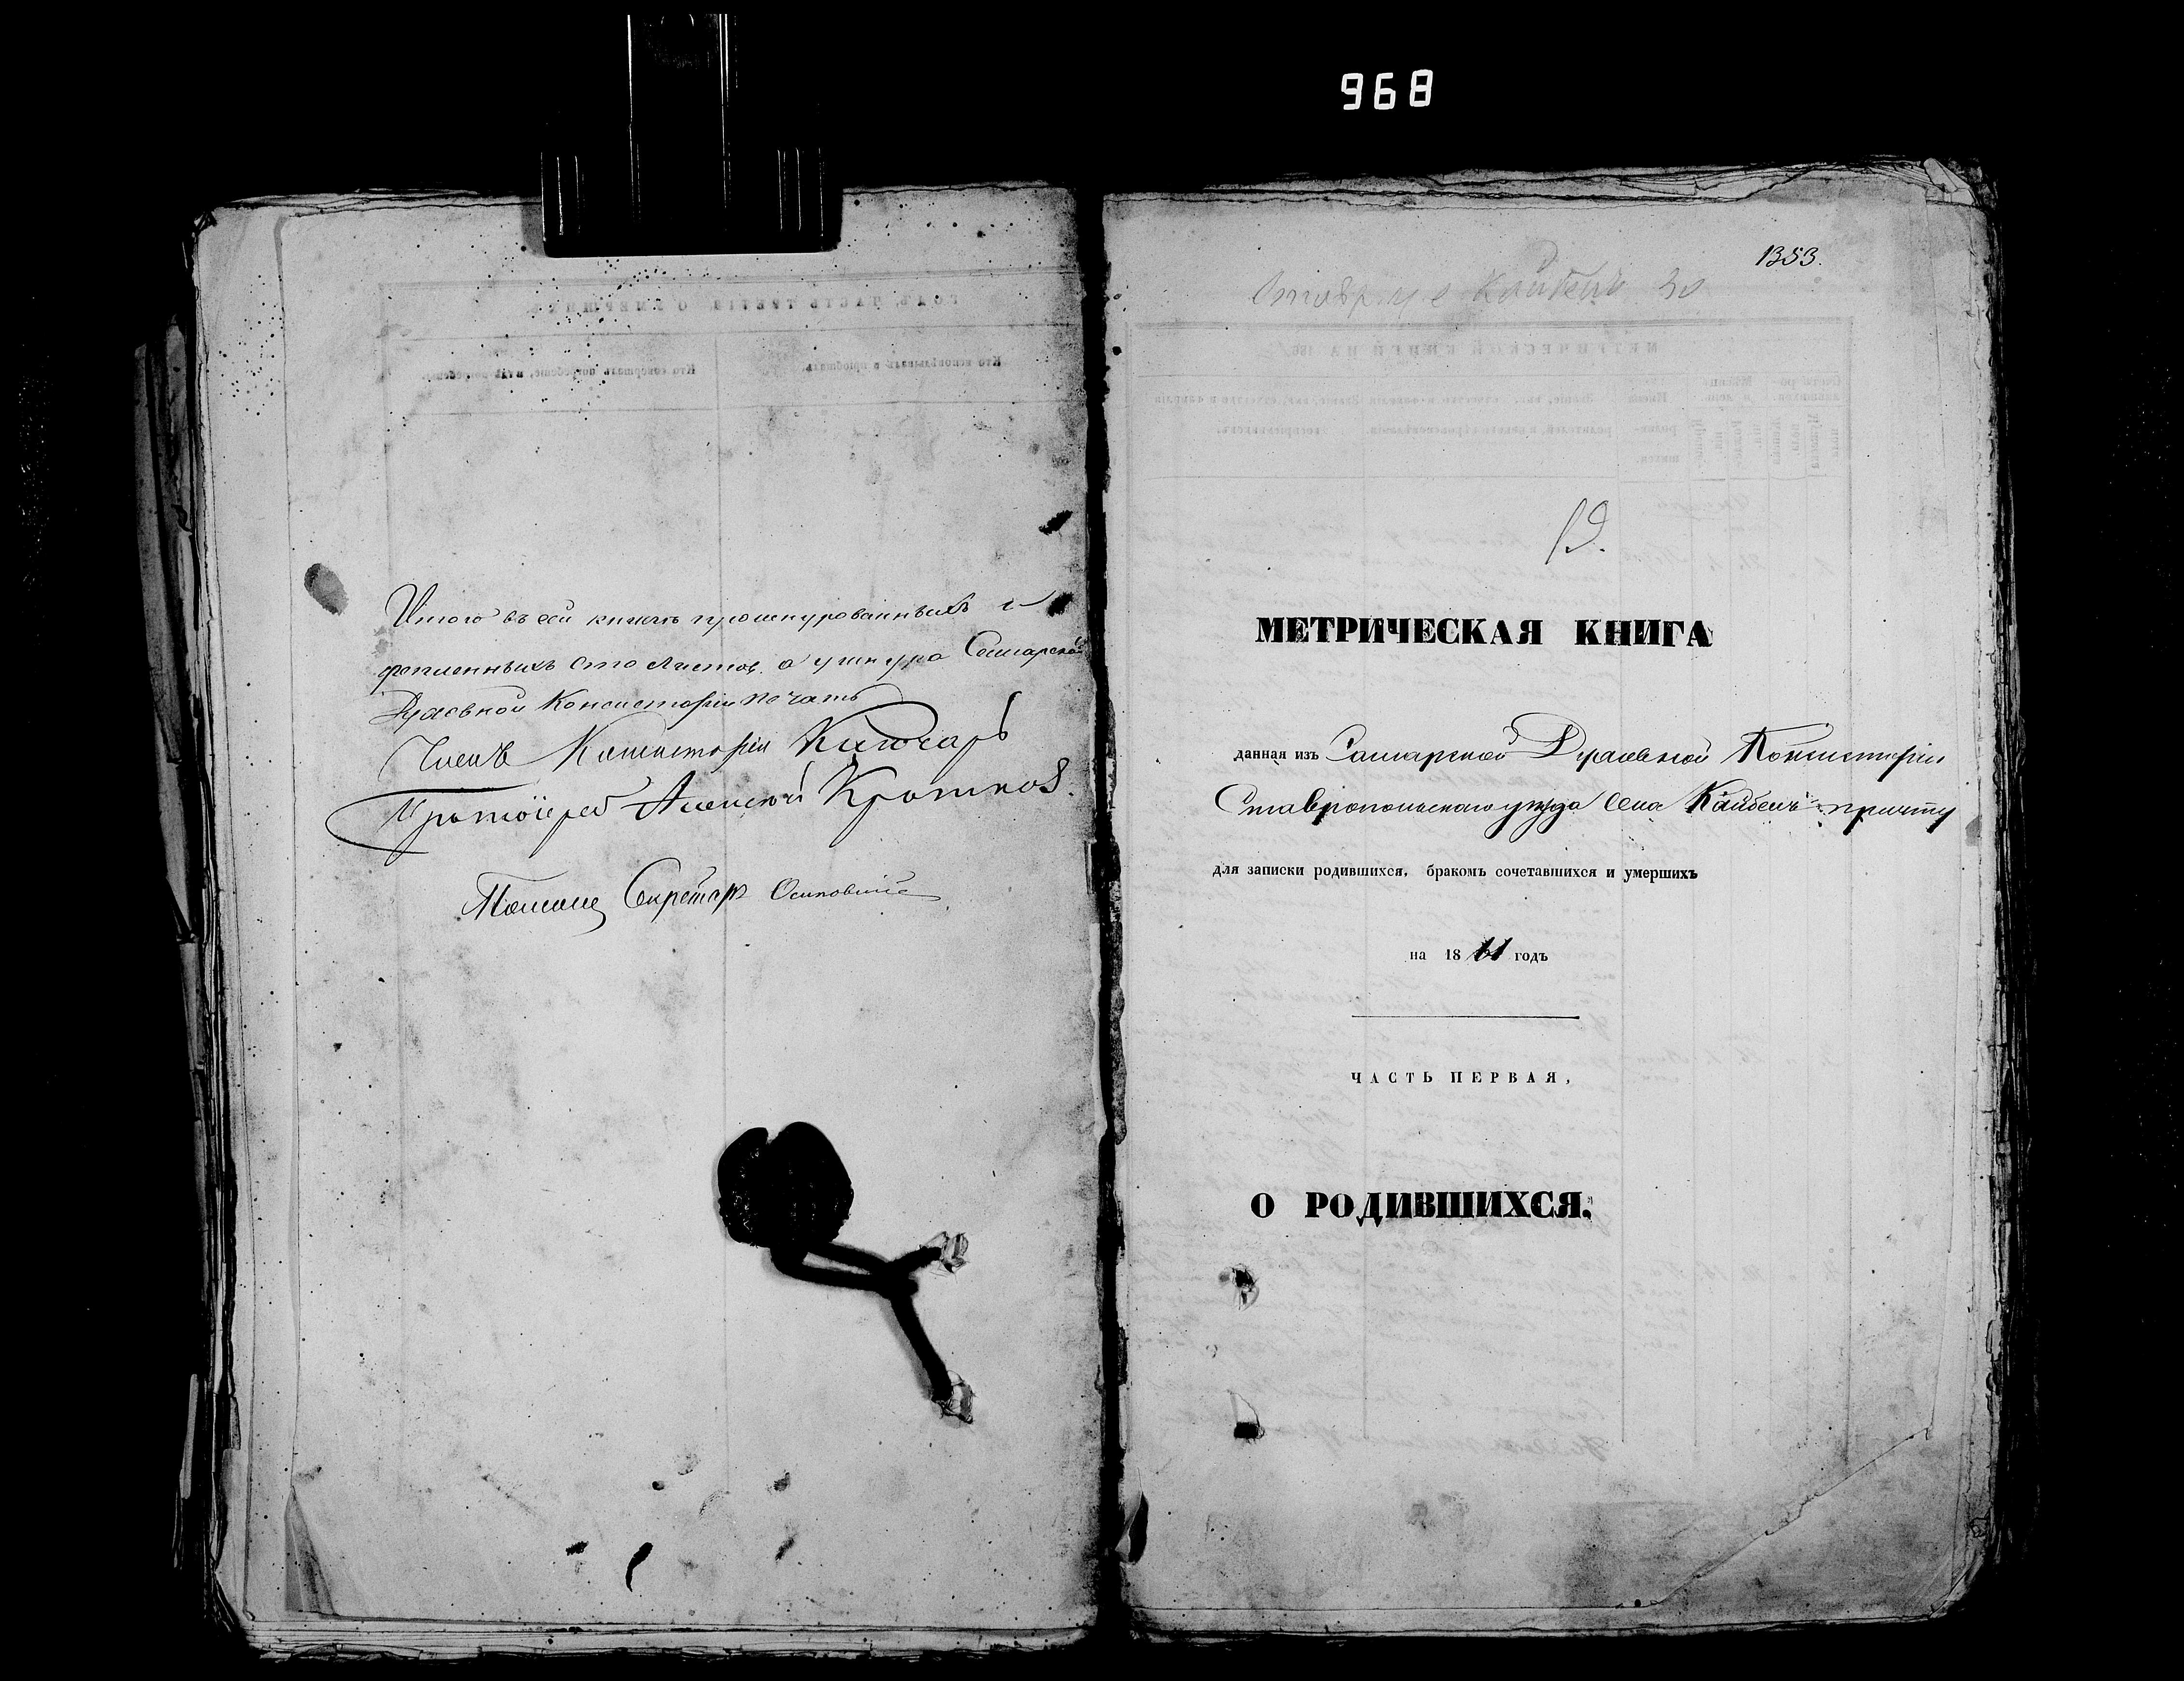 968
Итого въ сей книгѣ прошнурованныхъ и
скрѣпленныхъ сто листовъ, а у шнура Самарской
Духовной Консисторіи печать
Членъ Консисторіи Ключарь
Протоіерей Алексѣй Кротковъ.
Секретарь
1353.
Кайбелъ 30
19.
МЕТРИЧЕСКАЯ КНИГА
данная изъ Самарской Духовной Консисторіи
Ставропольскаго уѣзда села Кайбелъ причту
для записки родившихся, бракомъ сочетавшихся и умершихъ
на 1861 годъ
ЧАСТЬ ПЕРВАЯ,
О РОДИВШИХСЯ.